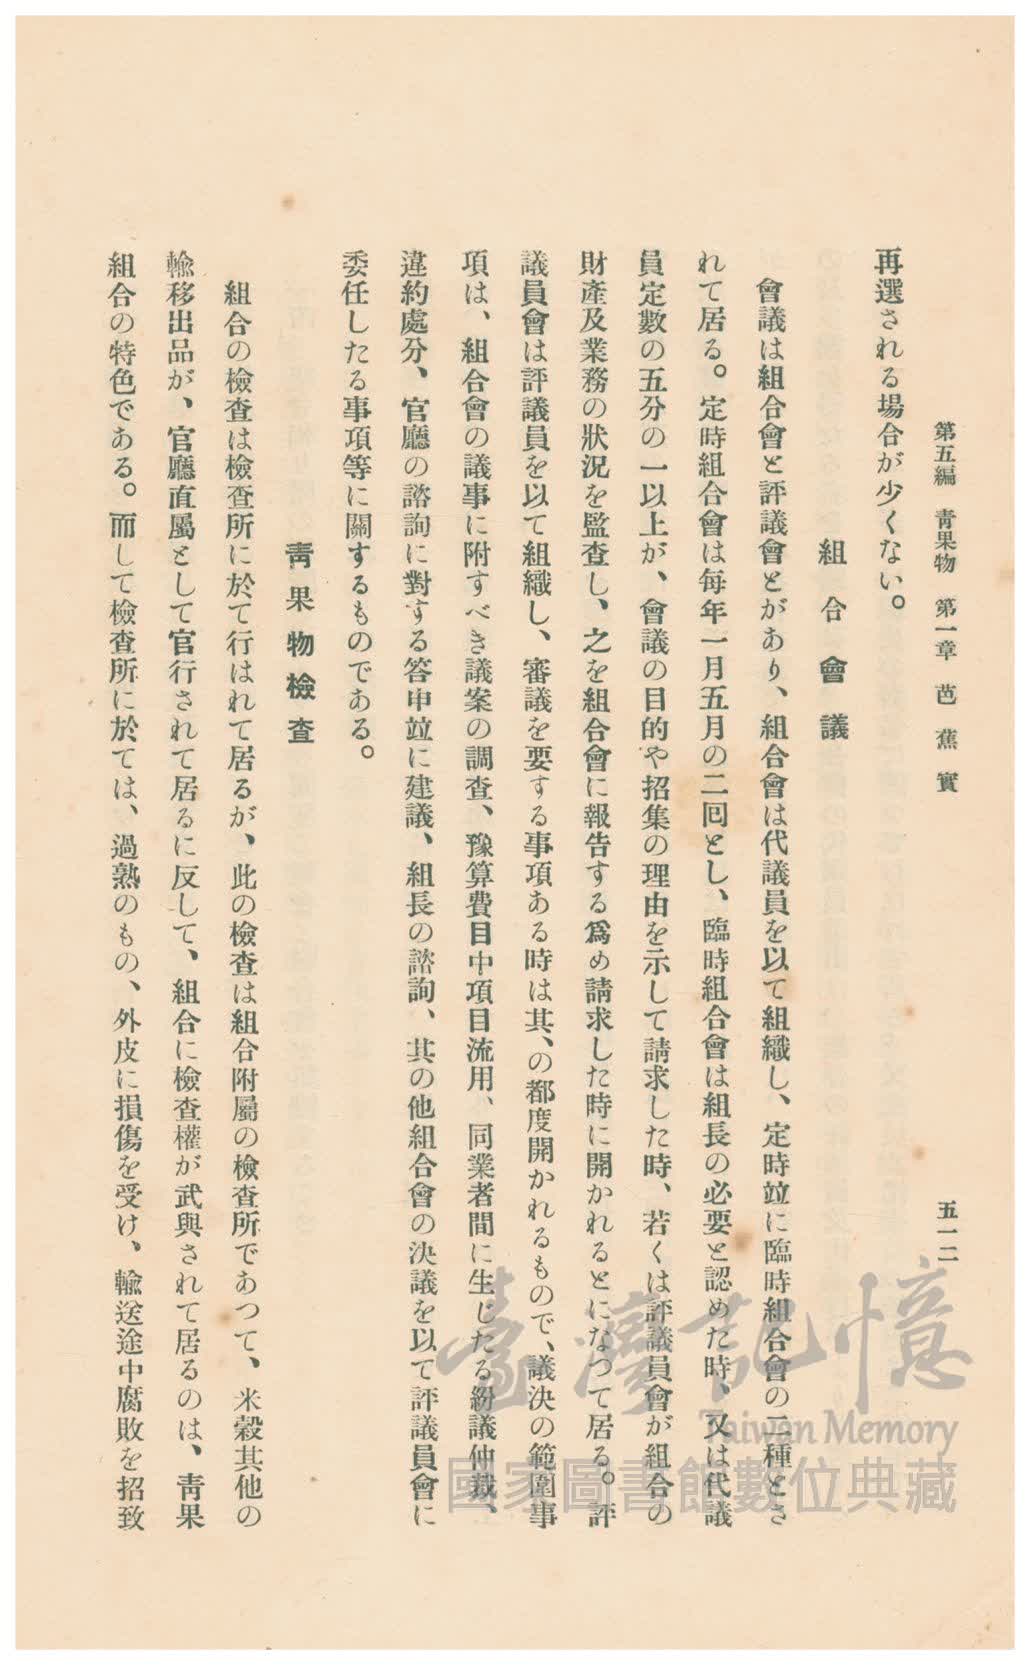 第五編 靑果物 第一章 芭蕉實
五一二
再選される場合が少くない。
組合會議
會議は組合會と評議會とがあり、組合會は代議員を以て組織し、定時竝に臨時組合會の二種とさ
れて居る。定時組合會は每年一月五月の二囘とし、臨時組合會は組長の必要と認めた時、又は代議
員定數の五分の一以上が、會議の目的や招集の理由を示して請求した時、若くは評議員會が組合の
財產及業務の狀況を監査し、之を組合會に報告する爲め請求した時に開かれるとになつて居る。評
議員會は評議員を以て組織し、審議を要する事項ある時は其、の都度開かれるもので、議決の範圍事
項は、組合會の議事に附すべき議案の調査、豫算費目中項目流用、同業者間に生じたる紛議仲裁、
違約處分、官廳の諮詢に對する答申竝に建議、組長の諮詢、其の他組合會の決議を以て評議員會に
委任したる事項等に關するものである。
靑果物檢査
組合の檢査は檢査所に於て行はれて居るが、此の檢査は組合附屬の檢査所であつて、米穀其他の
輸移出品が、官廳直屬として官行されて居るに反して、組合に檢査權が武與されて居るのは、靑果
組合の特色である。而して檢査所に於ては、過熟のもの、外皮に損傷を受け、輸送途中腐敗を招致
臺灣記憶
Taiwan Memory
國家圖書館數位典藏